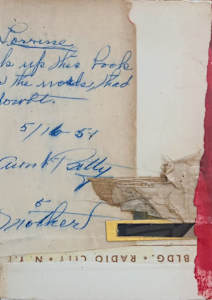 Lorrine
k up this book
the words, that
doubt.
5/16 54
Aunt Betty
5
Mother
BLDG. • RADIO CITY • N. Y.